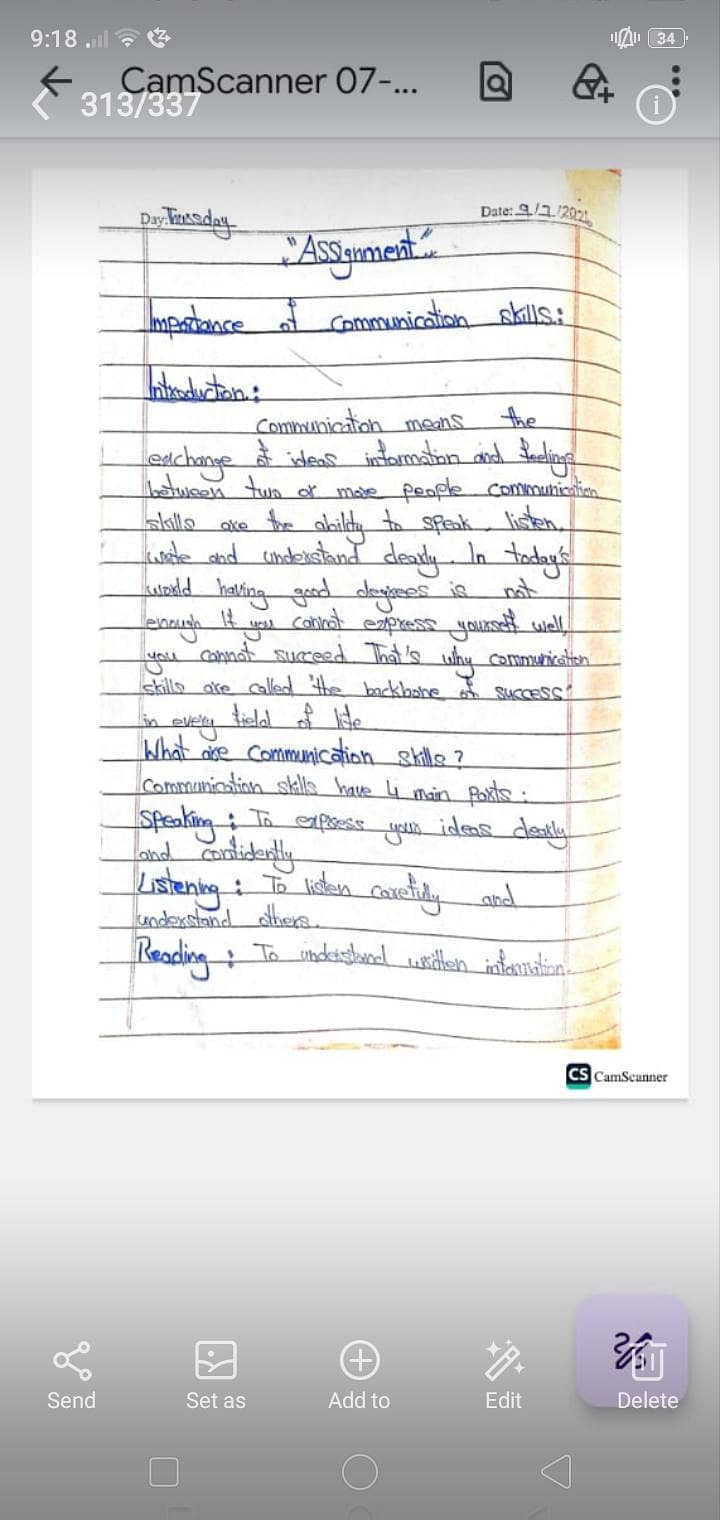 9:18
34
CamScanner 07-...
313/337
Day: Thursday
Date: 9/7/202
"Assignment"
Importance of Communication skills:
Introduction:
Communication means the
exchange of ideas information and feelings
between two or more people communication
skills are the ability to speak, listen,
write and understand clearly. In today's
world having good degrees is not
enough If you cannot express yourself well,
you cannot succeed. That's why communication
skills are called "the backbone of success"
in every field of life
What are Communication skills?
Communication skills have 4 main parts:
Speaking: To express your ideas clearly
and confidently
Listening: To listen carefully and
understand others.
Reading: To understand written information.
CS CamScanner
Send
Set as
Add to
Edit
Delete